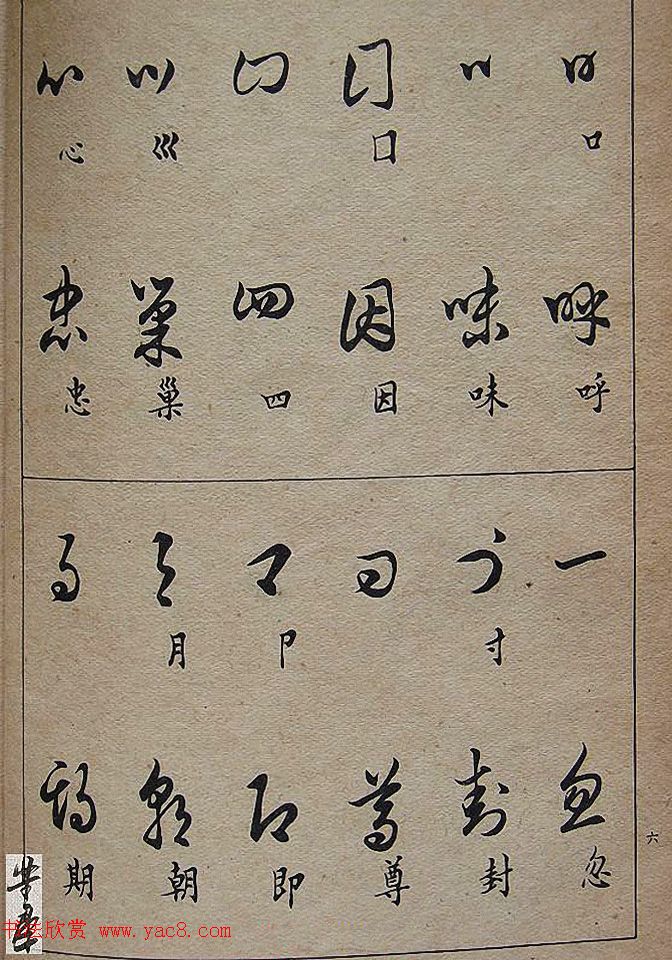 口 口 巛 心
呼 味 因 四 巢 忠
寸 卩 月
忽 封 尊 即 朝 期
六
书法欣赏 www.yac8.com